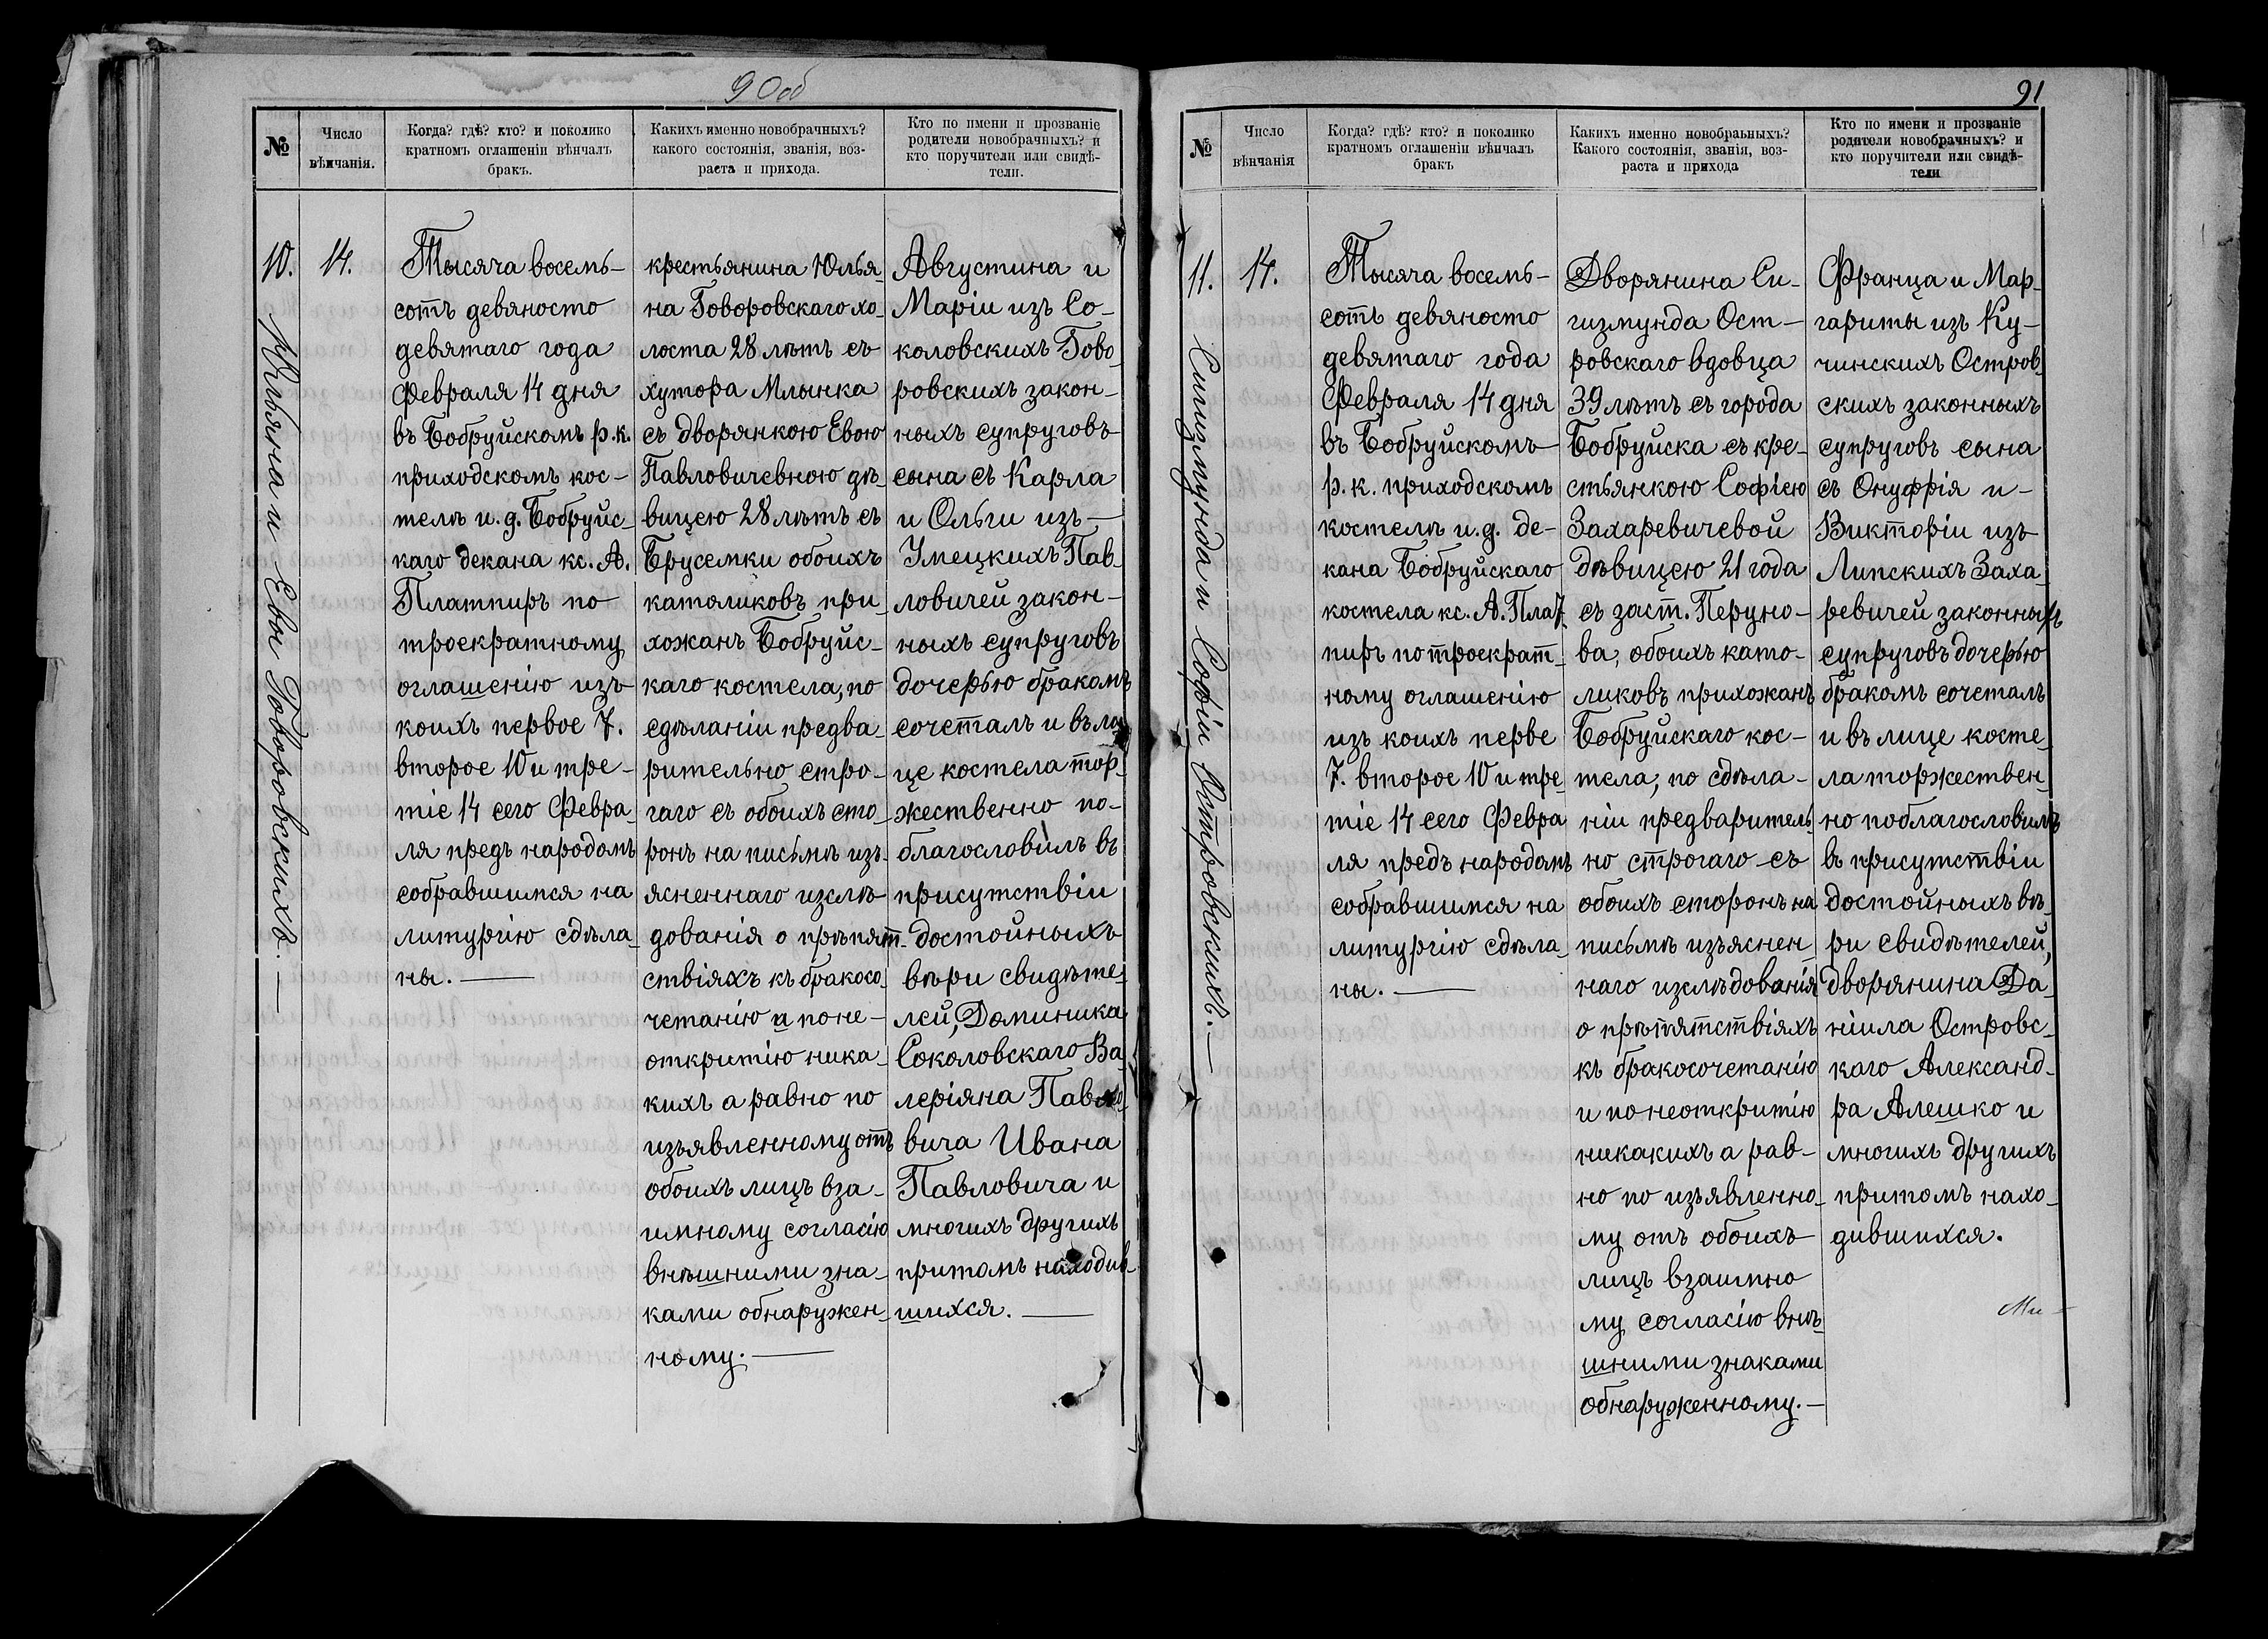 90 об
№
Число
вѣнчанія.
Когда? гдѣ? кто? и поколико
кратномъ оглашеніи вѣнчалъ
бракъ.
Какихъ именно новобрачныхъ?
какого состоянія, званія, воз-
раста и прихода.
Кто по имени и прозваніе
родители новобрачныхъ? и
кто поручители или свидѣ-
тели.
10.
14.
Юльяна и Евы Говоровскихъ. —
Тысяча восемь-
сотъ девяносто
девятаго года
Февраля 14 дня
въ Бобруйскомъ р. к.
приходскомъ кос-
телѣ и. д. Бобруйс-
каго декана кс. А.
Платпиръ по
троекратному
оглашенію изъ
коихъ первое 7.
второе 10 и тре-
тіе 14 сего Февра-
ля предъ народомъ
собравшимся на
литургію сдѣла-
ны. —
крестьянина Юлья-
на Говоровскаго хо-
лоста 28 лѣтъ съ
хутора Млынка
съ дворянкою Евою
Павловичевною дѣ-
вицею 28 лѣтъ съ
Брусемки обоихъ
католиковъ при-
хожанъ Бобруйс-
каго костела, по
сдѣланіи предва-
рительно стро-
гаго съ обоихъ сто-
ронъ на письмѣ изъ-
ясненнаго изслѣ-
дованія о прѣпят-
ствіяхъ къ бракосо-
четанію и поне-
открытію ника-
кихъ а равно по
изъявленному отъ
обоихъ лицъ вза-
имному согласію
внѣшними зна-
ками обнаружен-
ному. —
Августина и
Маріи изъ Со-
коловскихъ Гово-
ровскихъ закон-
ныхъ супруговъ
сына съ Карла
и Ольги изъ —
Умецкихъ Пав-
ловичей закон-
ныхъ супруговъ
дочерью бракомъ
сочеталъ и въ ли-
це костела тор-
жественно по-
благословилъ въ
присутствіи
достойныхъ
вѣри свидѣте-
лей, Доминика
Соколовскаго Ва-
леріяна Павло-
вича Ивана
Павловича и
многихъ другихъ
притомъ находив-
шихся. —
91
№
Число
вѣнчанія
Когда? гдѣ? кто? и поколико
кратномъ оглашеніи вѣнчалъ
бракъ
Какихъ именно новобраьныхъ?
Какого состоянія, званія, воз-
раста и прихода
Кто по имени и прозваніе
родители новобрачныхъ? и
кто поручители или свидѣ-
тели
11.
14.
Сигизмунда и Софіи Островскихъ. —
Тысяча восемь-
сотъ девяносто
девятаго года
Февраля 14 дня
въ Бобруйскомъ
р. к. приходскомъ
костелѣ и. д. де-
кана Бобруйскаго
костела кс. А. Плат-
пиръ по троекрат-
ному оглашенію
изъ коихъ перве
7. второе 10 и тре-
тіе 14 сего Февра
ля предъ народомъ
собравшимся на
литургію сдѣла-
ны. —
Дворянина Си-
гизмунда Ост-
ровскаго вдовца
39 лѣтъ съ города
Бобруйска съ кре-
стьянкою Софіею
Захаревичевой
дѣвицею 21 года
съ заст. Перуно-
ва, обоихъ като-
ликовъ прихожанъ
Бобруйскаго кос-
тела, по сдѣла-
ніи предваритель-
но строгаго съ
обоихъ сторонъ на
письмѣ изъяснен-
наго изслѣдованія
о прѣпятствіяхъ
къ бракосочетанію
и по неоткрытію
никакихъ а рав-
но по изъявленно-
му отъ обоихъ
лицъ взаимно
му согласію внѣ-
шними знаками
обнаруженному. —
Франца и Мар-
гариты изъ Ку-
чинскихъ Остров-
скихъ законныхъ
супруговъ сына
съ Онуфрія и —
Викторіи изъ
Липскихъ Заха-
ревичей законныхъ
супруговъ дочерью
бракомъ сочеталъ
и въ лице косте-
ла торжествен-
но поблагословилъ
въ присутствіи
достойныхъ вѣ-
ри свидѣтелей,
дворянина Да-
ніила Островс-
каго Александ-
ра Алешко и
многихъ другихъ
притомъ нахо-
дившихся.